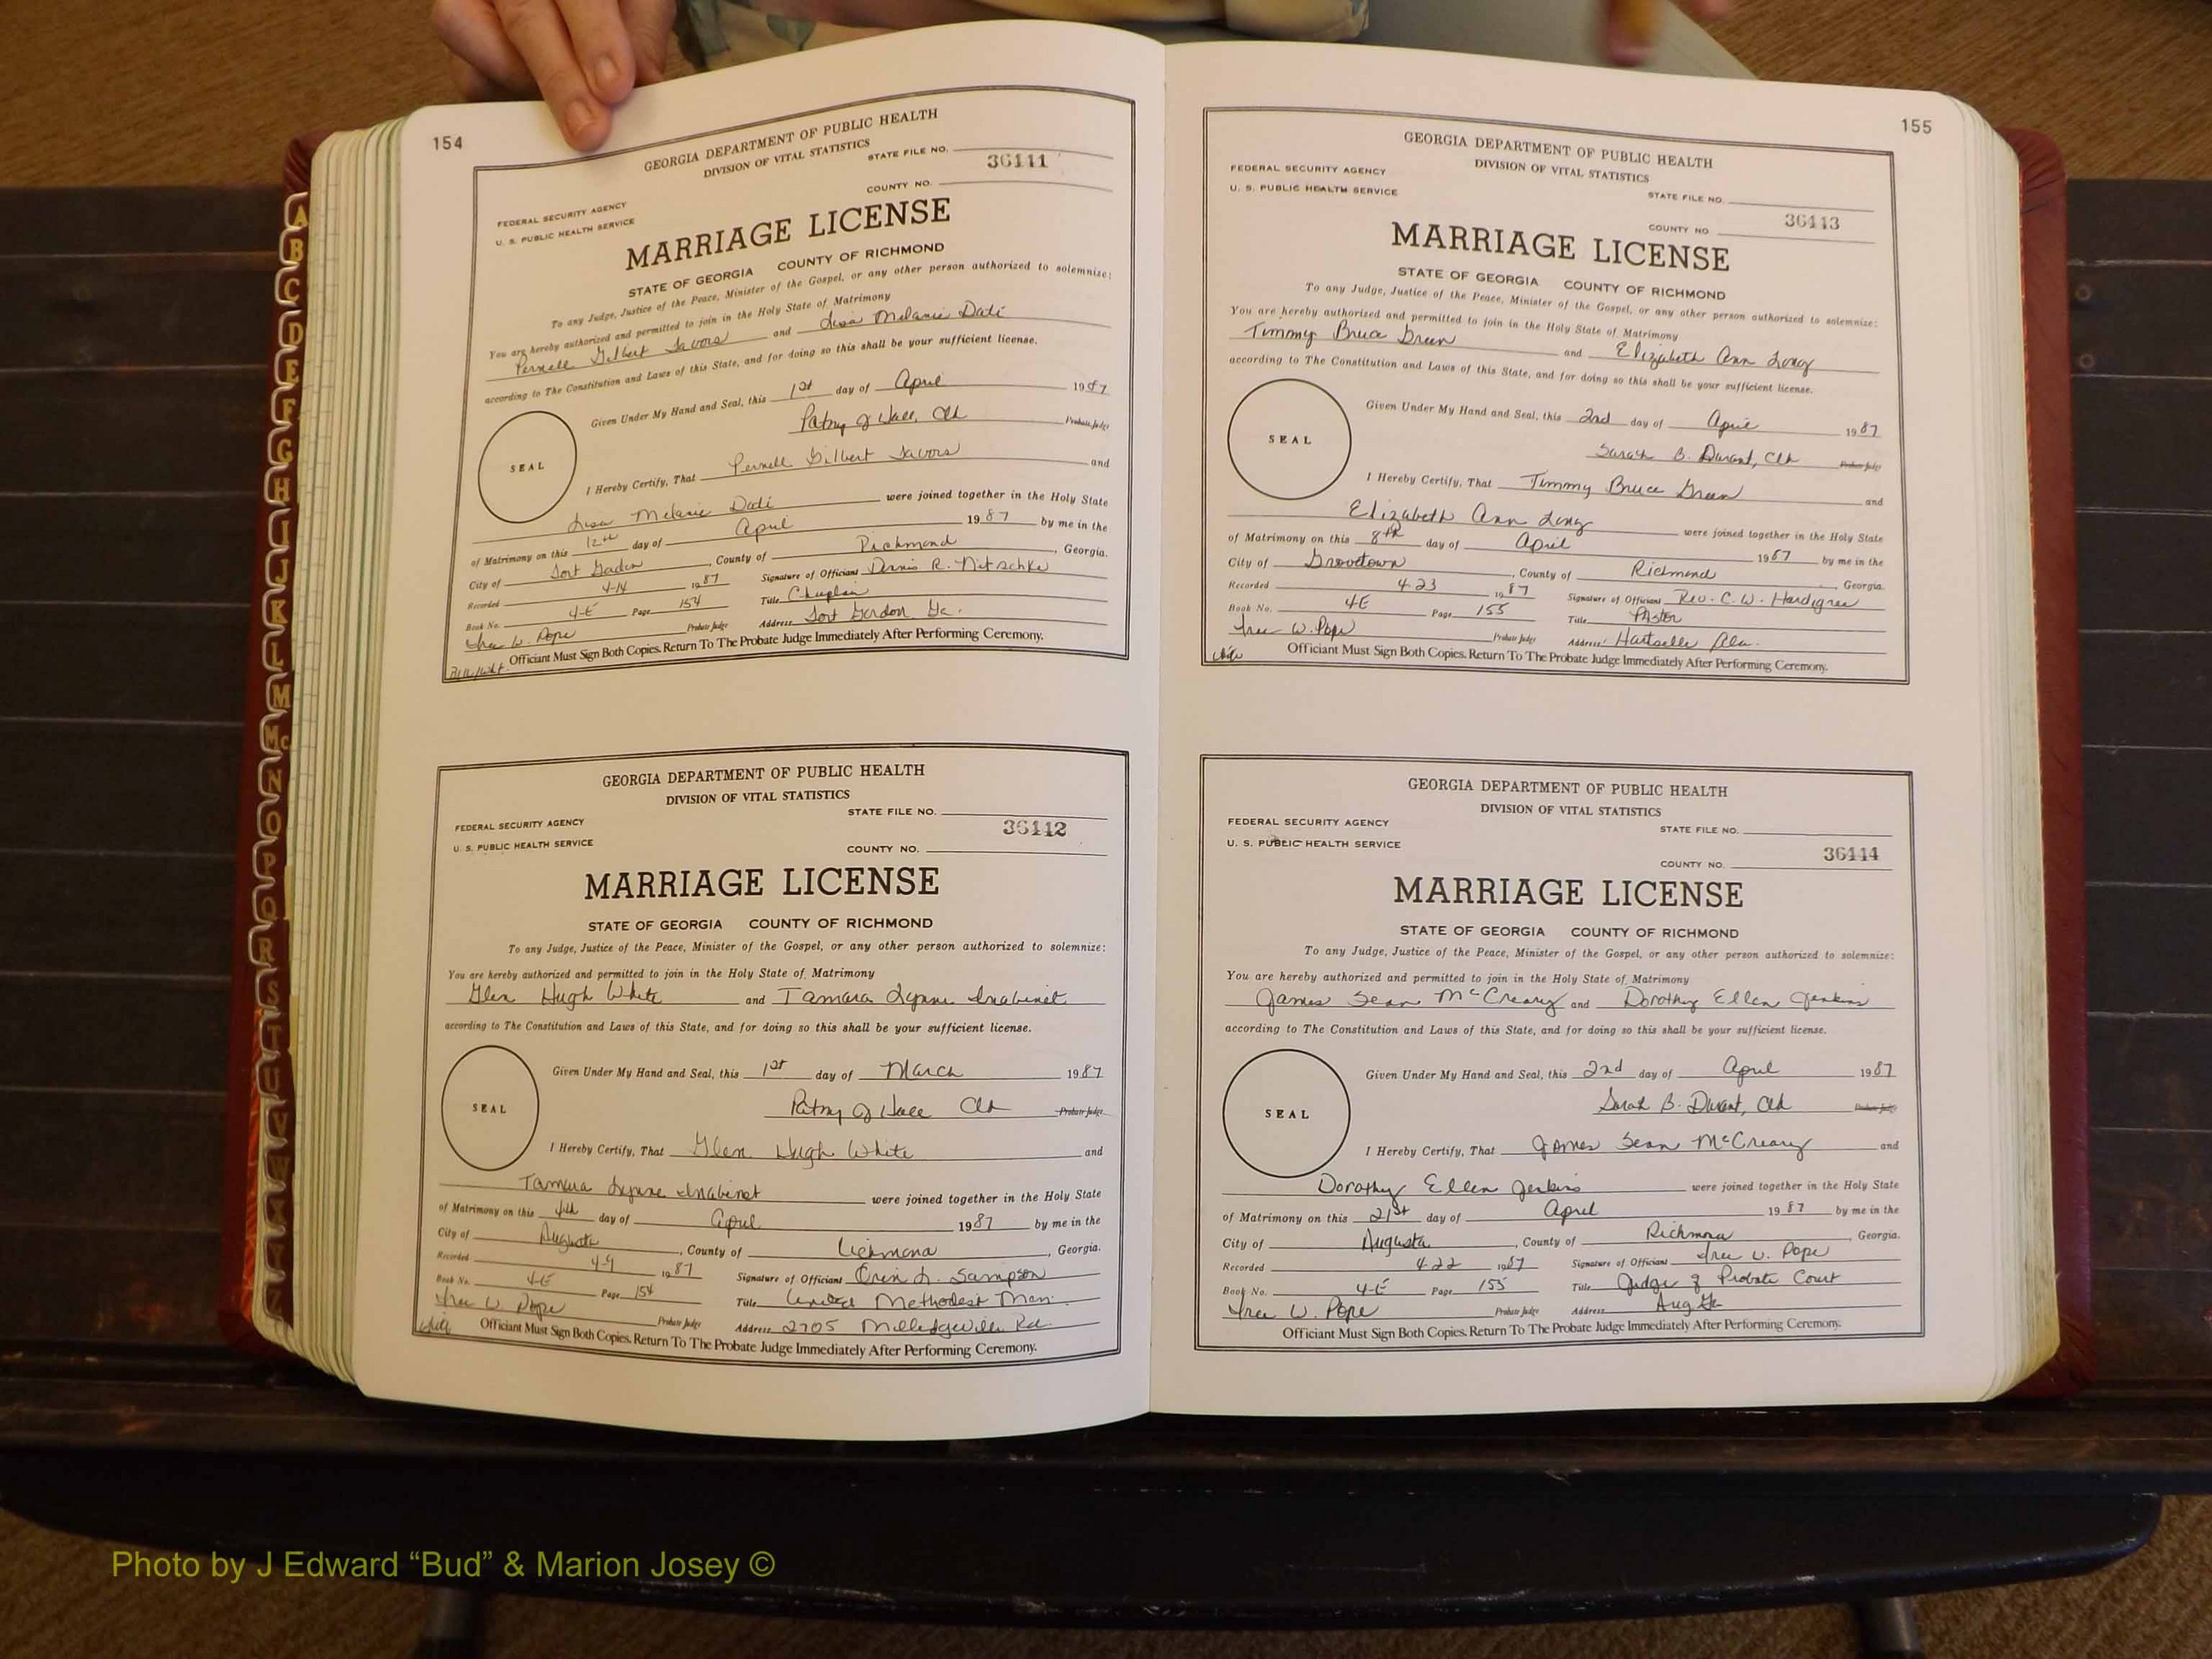 154
GEORGIA DEPARTMENT OF PUBLIC HEALTH
DIVISION OF VITAL STATISTICS
STATE FILE NO.
36111
COUNTY NO.
FEDERAL SECURITY AGENCY
U. S. PUBLIC HEALTH SERVICE
MARRIAGE LICENSE
STATE OF GEORGIA COUNTY OF RICHMOND
To any Judge, Justice of the Peace, Minister of the Gospel, or any other person authorized to solemnize:
You are hereby authorized and permitted to join in the Holy State of Matrimony
Pernell Gilbert Savors and Lisa Melanie Dati
according to The Constitution and Laws of this State, and for doing so this shall be your sufficient license.
Given Under My Hand and Seal, this 1st day of April 1987
Probate Judge
SEAL
I Hereby Certify, That Pernell Gilbert Savors and
Lisa Melanie Dati were joined together in the Holy State
of Matrimony on this 12th day of April 1987 by me in the
City of Fort Gordon, County of Richmond, Georgia.
Recorded 4-14 1987 Signature of Officiant Dennis R. Nitschke
Book No. 4-E Page 154 Title Chaplain
W. Pope Probate Judge Address Fort Gordon Ga.
Officiant Must Sign Both Copies. Return To The Probate Judge Immediately After Performing Ceremony.
GEORGIA DEPARTMENT OF PUBLIC HEALTH
DIVISION OF VITAL STATISTICS
STATE FILE NO.
36112
FEDERAL SECURITY AGENCY
U. S. PUBLIC HEALTH SERVICE
COUNTY NO.
MARRIAGE LICENSE
STATE OF GEORGIA COUNTY OF RICHMOND
To any Judge, Justice of the Peace, Minister of the Gospel, or any other person authorized to solemnize:
You are hereby authorized and permitted to join in the Holy State of Matrimony
Glen Hugh White and Tamara Lynne Inabinet
according to The Constitution and Laws of this State, and for doing so this shall be your sufficient license.
Given Under My Hand and Seal, this 1st day of March 1987
Probate Judge
SEAL
I Hereby Certify, That Glen Hugh White and
Tamara Lynne Inabinet were joined together in the Holy State
of Matrimony on this 4th day of April 1987 by me in the
City of Augusta, County of Richmond, Georgia.
Recorded 4-9 1987 Signature of Officiant Orin L. Sampson
Book No. 4-E Page 154 Title United Methodist Man.
W Pope Probate Judge Address 2705 Milledgeville Rd.
Officiant Must Sign Both Copies. Return To The Probate Judge Immediately After Performing Ceremony.
155
GEORGIA DEPARTMENT OF PUBLIC HEALTH
DIVISION OF VITAL STATISTICS
FEDERAL SECURITY AGENCY
U. S. PUBLIC HEALTH SERVICE
STATE FILE NO.
36113
COUNTY NO
MARRIAGE LICENSE
STATE OF GEORGIA COUNTY OF RICHMOND
To any Judge, Justice of the Peace, Minister of the Gospel, or any other person authorized to solemnize:
You are hereby authorized and permitted to join in the Holy State of Matrimony
Timmy Bruce Green and Elizabeth Ann Long
according to The Constitution and Laws of this State, and for doing so this shall be your sufficient license.
Given Under My Hand and Seal, this 2nd day of April 1987
Sarah B. Durant, Clk Probate Judge
SEAL
I Hereby Certify, That Timmy Bruce Green and
Elizabeth Ann Long were joined together in the Holy State
of Matrimony on this 8th day of April 1987 by me in the
City of Grovetown, County of Richmond Georgia.
Recorded 4-23 1987 Signature of Officiant Rev. C. W. Hardigree
Book No. 4E Page 155 Title Pastor
W. Pope Probate Judge Address Hartselle Ala.
Officiant Must Sign Both Copies. Return To The Probate Judge Immediately After Performing Ceremony.
GEORGIA DEPARTMENT OF PUBLIC HEALTH
DIVISION OF VITAL STATISTICS
FEDERAL SECURITY AGENCY
STATE FILE NO.
U. S. PUBLIC HEALTH SERVICE
36114
COUNTY NO.
MARRIAGE LICENSE
STATE OF GEORGIA COUNTY OF RICHMOND
To any Judge, Justice of the Peace, Minister of the Gospel, or any other person authorized to solemnize:
You are hereby authorized and permitted to join in the Holy State of Matrimony
James Sean McCreary and Dorothy Ellen Jenkins
according to The Constitution and Laws of this State, and for doing so this shall be your sufficient license.
Given Under My Hand and Seal, this 2nd day of April 1987
Sarah B. Durant, Clk Probate Judge
SEAL
I Hereby Certify, That James Sean McCreary and
Dorothy Ellen Jenkins were joined together in the Holy State
of Matrimony on this 21st day of April 1987 by me in the
City of Augusta, County of Richmond, Georgia.
Recorded 4-22 1987 Signature of Officiant W. Pope
Book No. 4-E Page 155 Title Judge of Probate Court
W. Pope Probate Judge Address Aug Ga
Officiant Must Sign Both Copies. Return To The Probate Judge Immediately After Performing Ceremony.
A
B
C
D
E
F
G
H
I
J
K
L
M
Mc
N
O
P
Q
R
S
T
U
V
W
Photo by J Edward “Bud” & Marion Josey ©